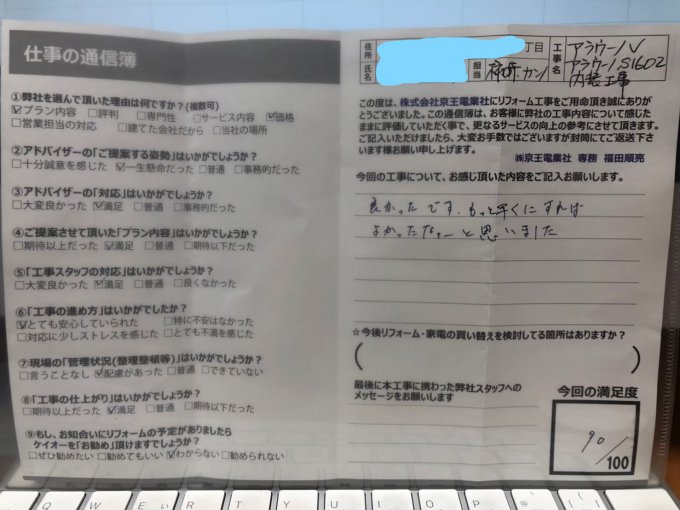 仕事の通信簿
①弊社を選んで頂いた理由は何ですか？(複数可)
☑プラン内容 □評判 □専門性 □サービス内容 ☑価格
□営業担当の対応 □建てた会社だから □当社の場所
②アドバイザーの「ご提案する姿勢」はいかがでしょうか？
□十分誠意を感じた ☑一生懸命だった □普通 □事務的だった
③アドバイザーの「対応」はいかがでしょうか？
□大変良かった ☑満足 □普通 □事務的だった
④ご提案させて頂いた「プラン内容」はいかがでしょうか？
□期待以上だった ☑満足 □普通 □期待以下だった
⑤「工事スタッフの対応」はいかがでしょうか？
□大変良かった ☑満足 □普通 □良くなかった
⑥「工事の進め方」はいかがでしたか？
☑とても安心していられた □特に不安はなかった
□対応に少しストレスを感じた □とても不満を感じた
⑦現場の「管理状況(整理整頓等)」はいかがでしょうか？
□言うことなし ☑配慮があった □普通 □できていない
⑧「工事の仕上がり」はいかがでしょうか？
□期待以上だった ☑満足 □普通 □期待以下だった
⑨もし、お知合いにリフォームの予定がありましたら
ケイオーを「お勧め」頂けますでしょうか？
□ぜひ勧めたい □勧めてもいい ☑わからない □勧められない
住所 丁目
氏名 担当
工事名 アラウーノV
アラウーノS1602
内装工事
この度は、株式会社京王電業社にリフォーム工事をご用命頂き誠にありが
とうございました。この通信簿は、お客様に弊社の工事内容について感じた
ままに評価していただく事で、更なるサービスの向上の参考にさせて頂きます。
ご記入いただけましたら、大変お手数ではございますが封筒にてご返送下さ
います様お願い申し上げます。
㈱京王電業社 専務 福田順亮
今回の工事について、お感じ頂いた内容をご記入お願いします。
良かったです。もっと早くにすれば
よかったなァーと思いました
☆今後リフォーム・家電の買い替えを検討してる箇所はありますか？
( )
最後に本工事に携わった弊社スタッフへの
メッセージをお願いします
今回の満足度
90/100
Q W E R T Y U I O P